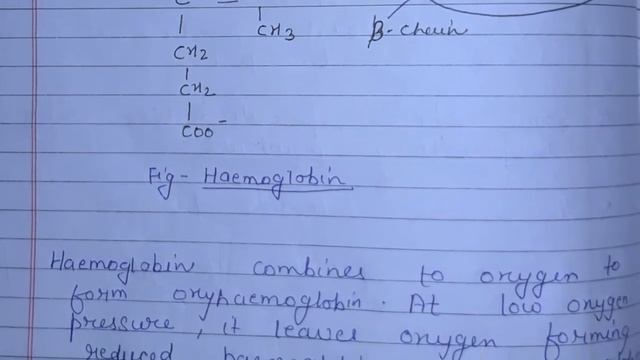 CH3
β-Chain
CH2
CH2
COO-
Fig- Haemoglobin
Haemoglobin combines to oxygen to
form oxyhaemoglobin. At low oxygen
pressure, it leaves oxygen forming
reduced